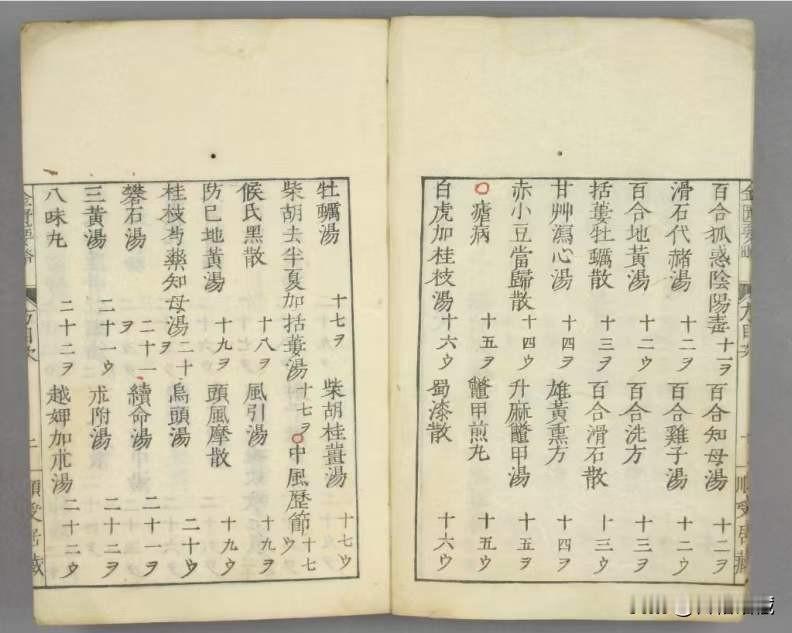 金匱要略 方目次 順受居藏
百合狐惑陰陽毒 十一ヲ 百合知母湯 十二ヲ
滑石代赭湯 十二ヲ 百合雞子湯 十二ウ
百合地黃湯 十二ウ 百合洗方 十三ヲ
括蔞牡蠣散 十三ヲ 百合滑石散 十三ウ
甘艸瀉心湯 十四ヲ 雄黃熏方 十四ヲ
赤小豆當歸散 十四ウ 升麻鼈甲湯 十四ウ
○瘧病 十五ヲ 鼈甲煎丸 十五ウ
白虎加桂枝湯 十六ウ 蜀漆散 十六ウ
牡蠣湯 十七ヲ 柴胡桂薑湯 十七ウ
柴胡去半夏加括蔞湯 十七ヲ ○中風歷節 十七ウ
候氏黑散 十八ヲ 風引湯 十九ヲ
防已地黃湯 十九ヲ 頭風摩散 十九ウ
桂枝芍藥知母湯 二十ヲ 烏頭湯 二十ウ
礬石湯 二十一ヲ 續命湯 二十一ヲ
三黃湯 二十一ウ 朮附湯 二十二ヲ
八味丸 二十二ヲ 越婢加朮湯 二十二ウ
金匱要略 方目次 二 順受居藏